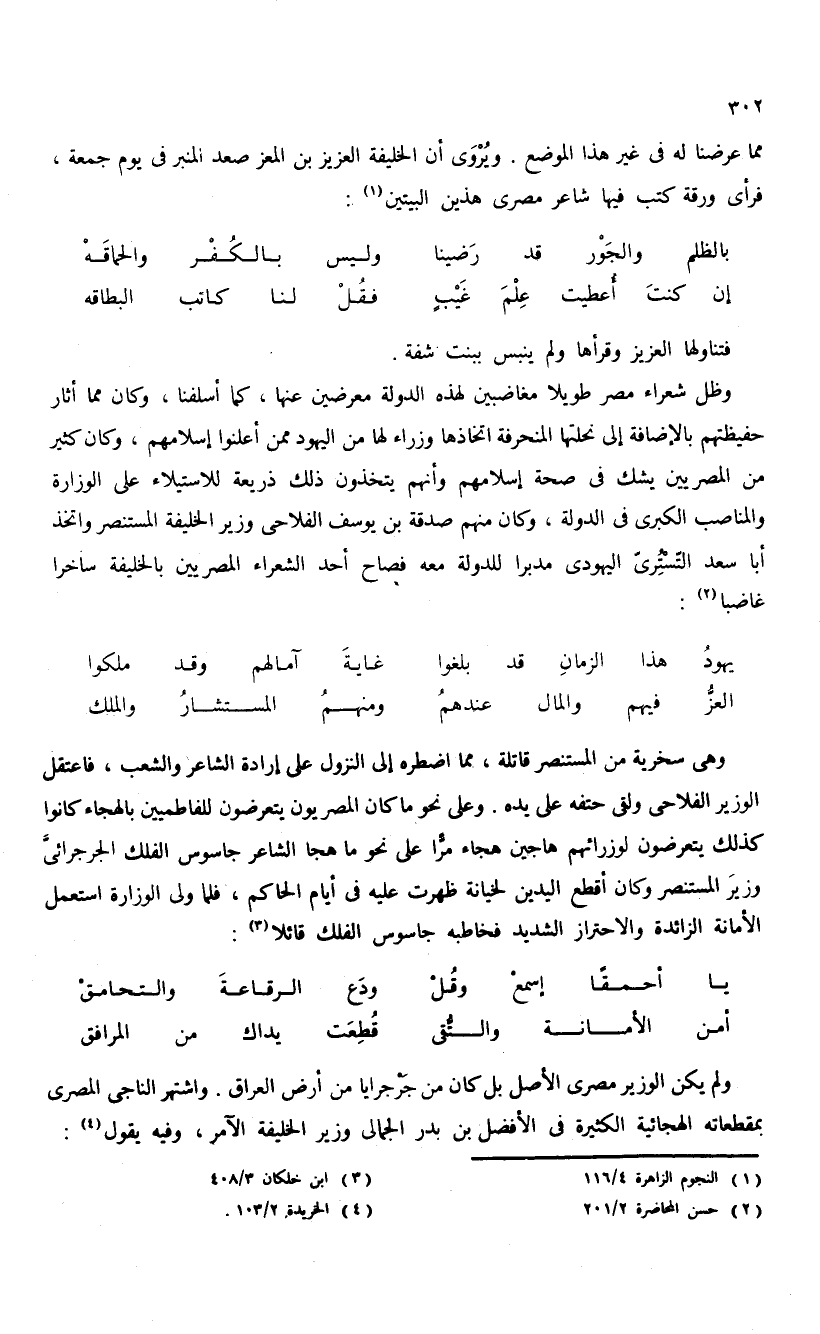 ٣٠٢
مما عرضنا له فى غير هذا الموضع . ويُرْوَى أن الخليفة العزيز بن المعز صعد المنبر فى يوم جمعة ،
فرأى ورقة كتب فيها شاعر مصرى هذين البيتين(١) :
بالظلم والجَوْر قد رَضينا وليس بالكُفْر والحماقَهْ
إن كنتَ أُعطيت عِلْمَ غَيْبٍ فقُلْ لنا كاتب البطاقه
فتناولها العزيز وقرأها ولم ينبس ببنت شفة .
وظل شعراء مصر طويلا مغاضبين لهذه الدولة معرضين عنها ، كما أسلفنا ، وكان مما أثار
حفيظتهم بالإضافة إلى نحلتها المنحرفة اتخاذها وزراء لها من اليهود ممن أعلنوا إسلامهم ، وكان كثير
من المصريين يشك فى صحة إسلامهم وأنهم يتخذون ذلك ذريعة للاستيلاء على الوزارة
والمناصب الكبرى فى الدولة ، وكان منهم صدقة بن يوسف الفلاحى وزير الخليفة المستنصر واتخذ
أبا سعد التّسْتُرِىّ اليهودى مدبرا للدولة معه فصاح أحد الشعراء المصريين بالخليفة ساخرا
غاضبا(٢) :
يهودُ هذا الزمانِ قد بلغوا غايةَ آمالهم وقد ملكوا
العزُّ فيهم والمال عندهمُ ومنهمُ المستشارُ والملك
وهى سخرية من المستنصر قاتلة ، مما اضطره إلى النزول على إرادة الشاعر والشعب ، فاعتقل
الوزير الفلاحى ولقى حتفه على يده . وعلى نحو ما كان المصريون يتعرضون للفاطميين بالهجاء كانوا
كذلك يتعرضون لوزرائهم هاجين هجاء مرًّا على نحو ما هجا الشاعر جاسوس الفلك الجرجرائىَّ
وزيرَ المستنصر وكان أقطع اليدين لخيانة ظهرت عليه فى أيام الحاكم ، فلما ولى الوزارة استعمل
الأمانة الزائدة والاحتراز الشديد فخاطبه جاسوس الفلك قائلا(٣) :
يا أحمقًا إسمعْ وقُلْ ودَع الرقاعةَ والتحامقْ
أمن الأمانة والتُّقى قُطِعَت يداك من المرافق
ولم يكن الوزير مصرى الأصل بل كان من جَرْجرايا من أرض العراق . واشتهر الناجى المصرى
بمقطعاته الهجائية الكثيرة فى الأفضل بن بدر الجمالى وزير الخليفة الآمر ، وفيه يقول(٤) :
(١) النجوم الزاهرة ١١٦/٤
(٢) حسن المحاضرة ٢٠١/٢
(٣) ابن خلكان ٤٠٨/٣
(٤) الخريدة ١٠٣/٢ .